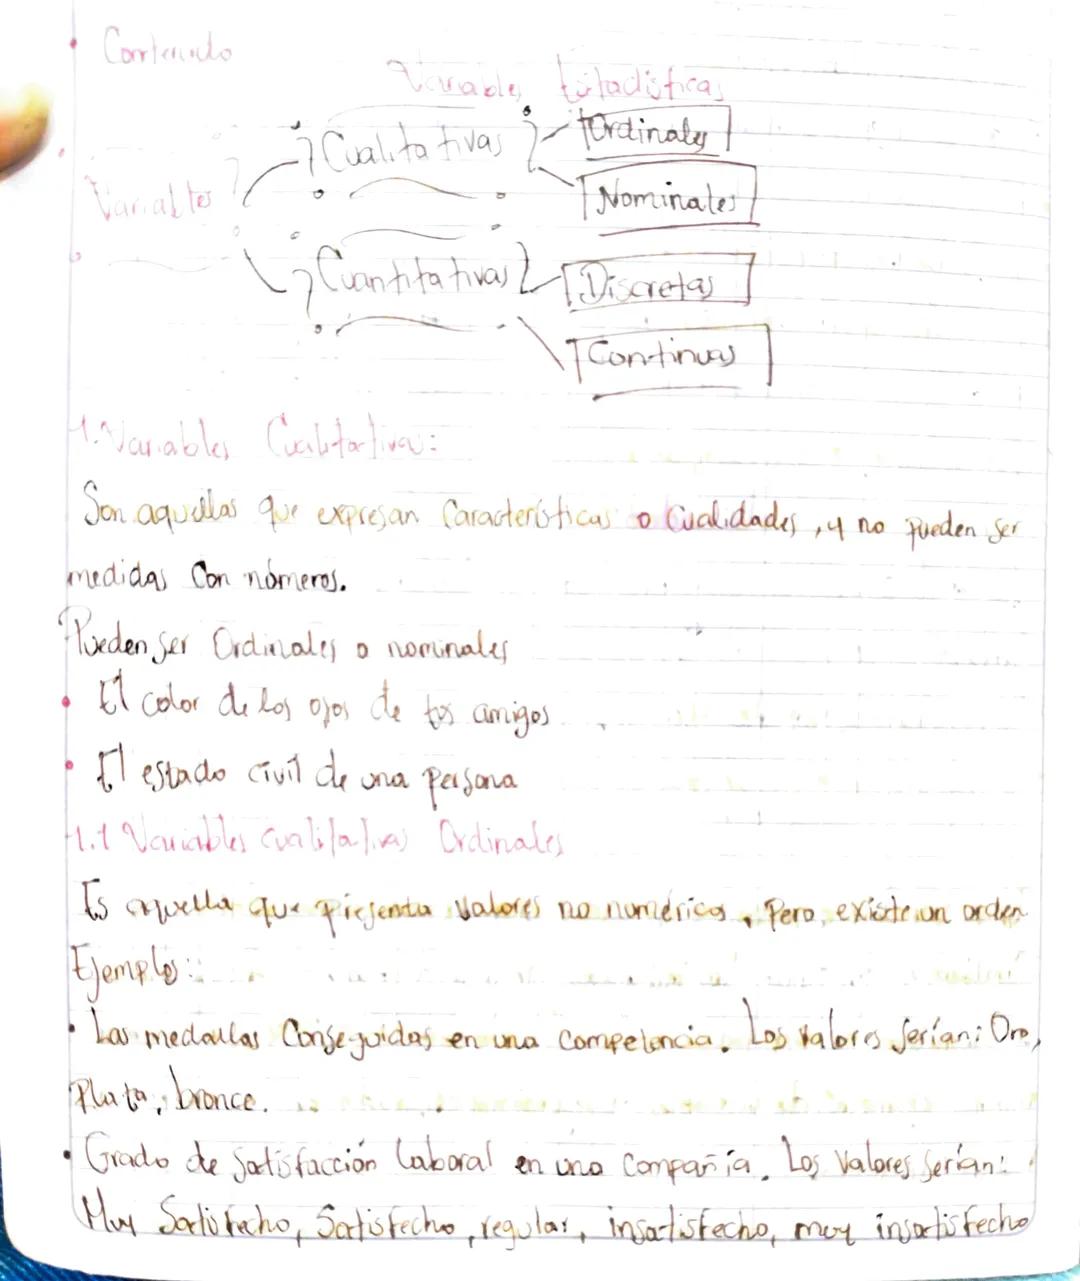 Contenido
Variables Estadísticas
Variables
Cualitativas
Ordinales
Nominales
Cuantitativas
Discretas
Continuas
1. Variables Cualitativas:
Son aquellas que expresan Características o Cualidades, y no pueden ser
medidas Con números.
Pueden ser Ordinales o nominales
• El color de los ojos de tus amigos
• El estado civil de una persona
1.1 Variables cualitativas Ordinales
Es aquella que presenta valores no numéricos, Pero existe un orden
Ejemplos:
• Las medallas Conseguidas en una competencia. Los valores serían: Oro,
Plata, bronce.
• Grado de Satisfacción Laboral en una Compañía. Los Valores serían:
Muy Satisfecho, Satisfecho, regular, insatisfecho, muy insatisfecho